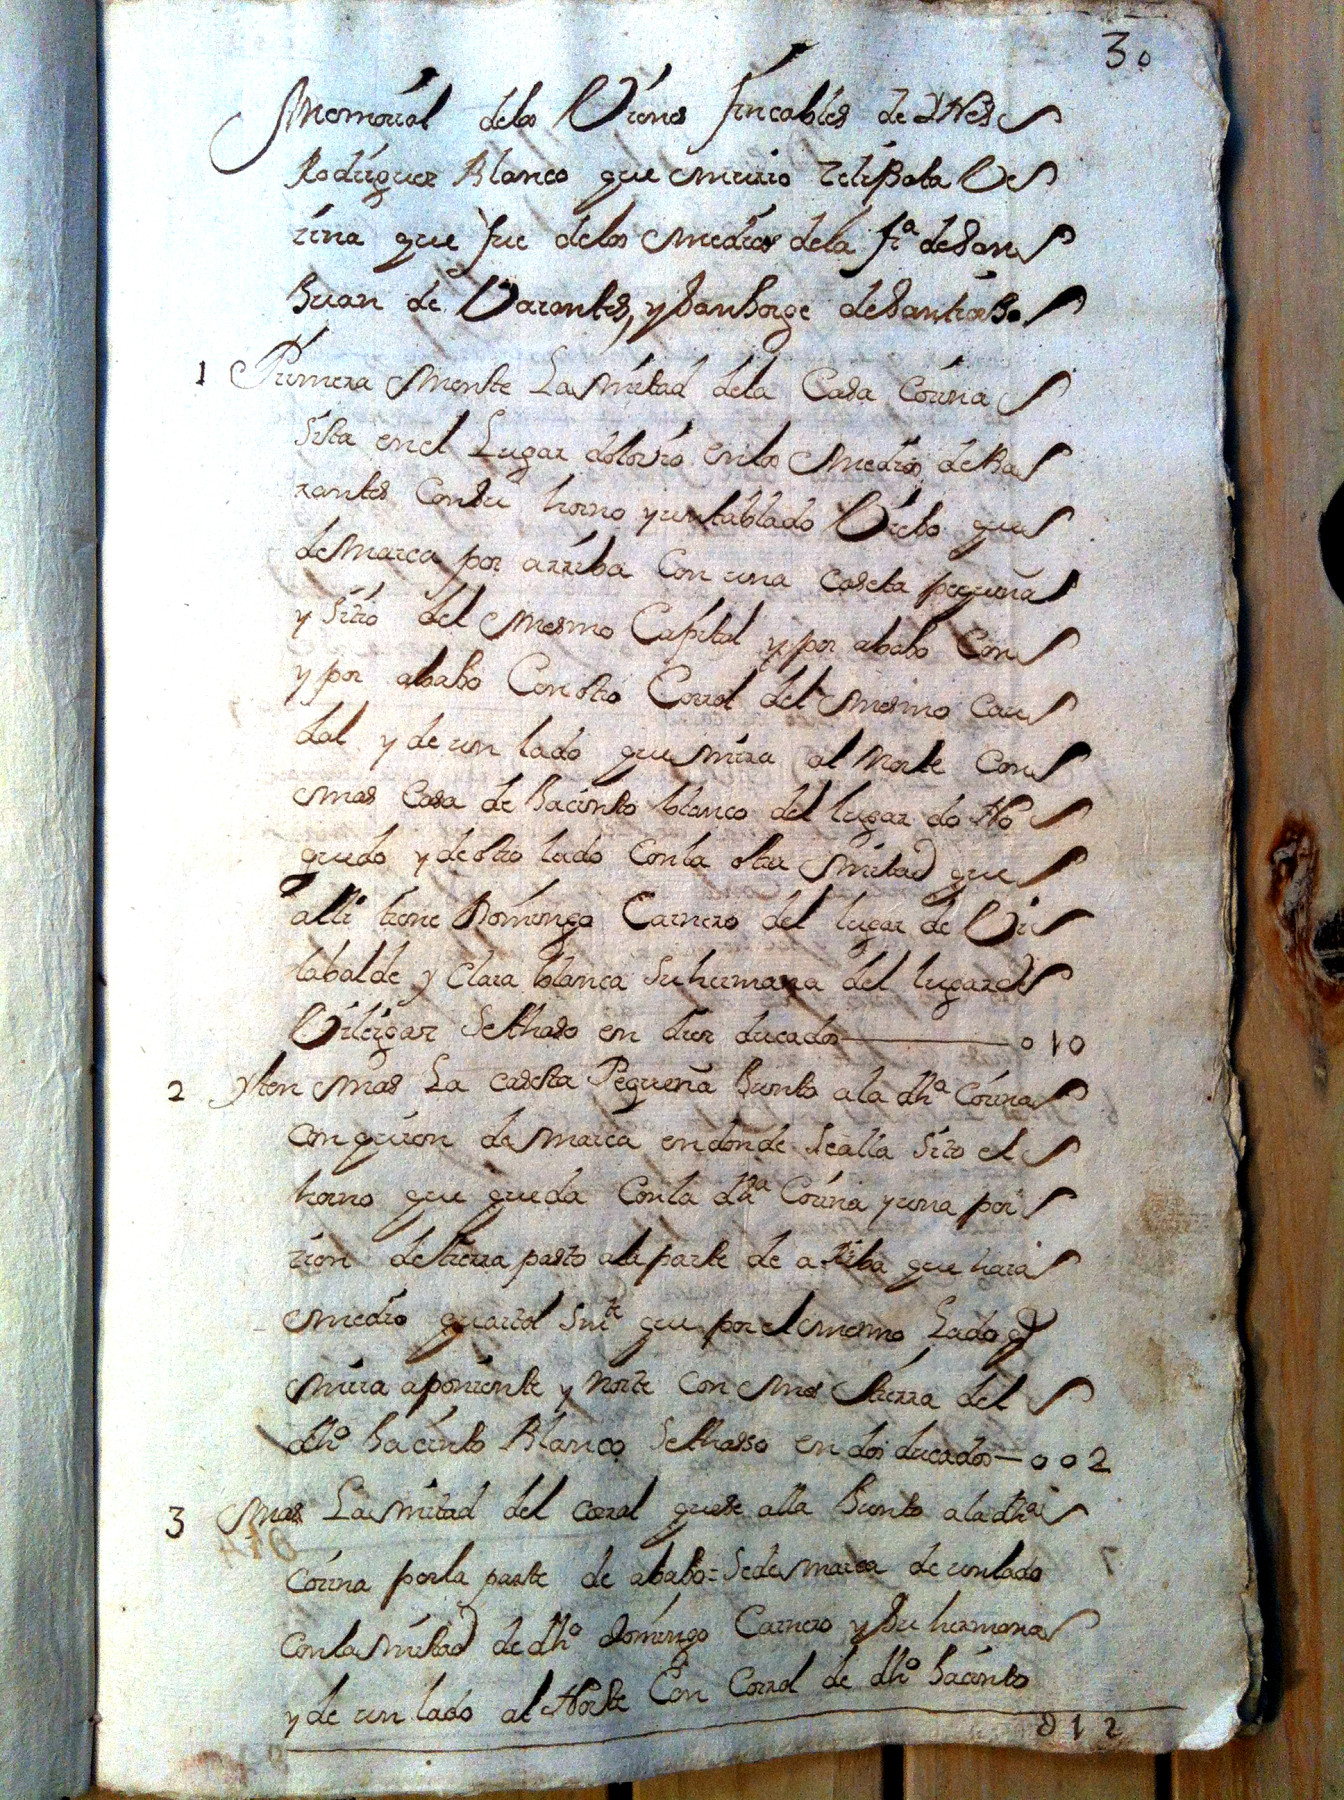 30
Memorial delos Vienes fincables de YNes
Rodriguez Blanco que murio Zelibata Ve
zina que fue delos Medios dela fra de San
Juan de Varantes, y San Jorge de Santiorjo
1 Primera Mente La Mitad dela Casa Cocina
Sita en el Lugar do Corvo en los Medios de Ba
rantes Con su horno y un tablado Viejo que
deMarca por arriba Con una caseta pequeña
y Sitio del Mesmo Capital y por abajo Con
y por abajo Con otro Corral del mesmo Cau
dal y de un lado que Mira al Norte Con
mas Casa de Jacinto blanco del lugar do No
guedo y de otro lado Con la otra Mitad que
alli tiene Domingo Carnero del lugar de Vi
labalde y Clara blanca Su hermana del lugar de
Vileigar Se thaso en diez ducados 010
2 Yten Mas La caseta Pequeña Junto a la dha Cocina
Con quien deMarca en donde Sealla Sito el
horno que queda Con la dha Cocina y una por
zion de tierra pasto a la parte de arriba que hara
medio quartol Smte que por el mesmo Lado q
Mira a poniente y Norte Con Mas tierra del
dho Jacinto Blanco Se thasso en dos ducados 002
3 Mas La Mitad del corral que se alla Junto a la dha
Cocina por la parte de abajo = Se deMarca de un lado
Con la Mitad de dho Domingo Carnero y Su hermana
y de un lado al Norte Con Corral de dho Jacinto
012